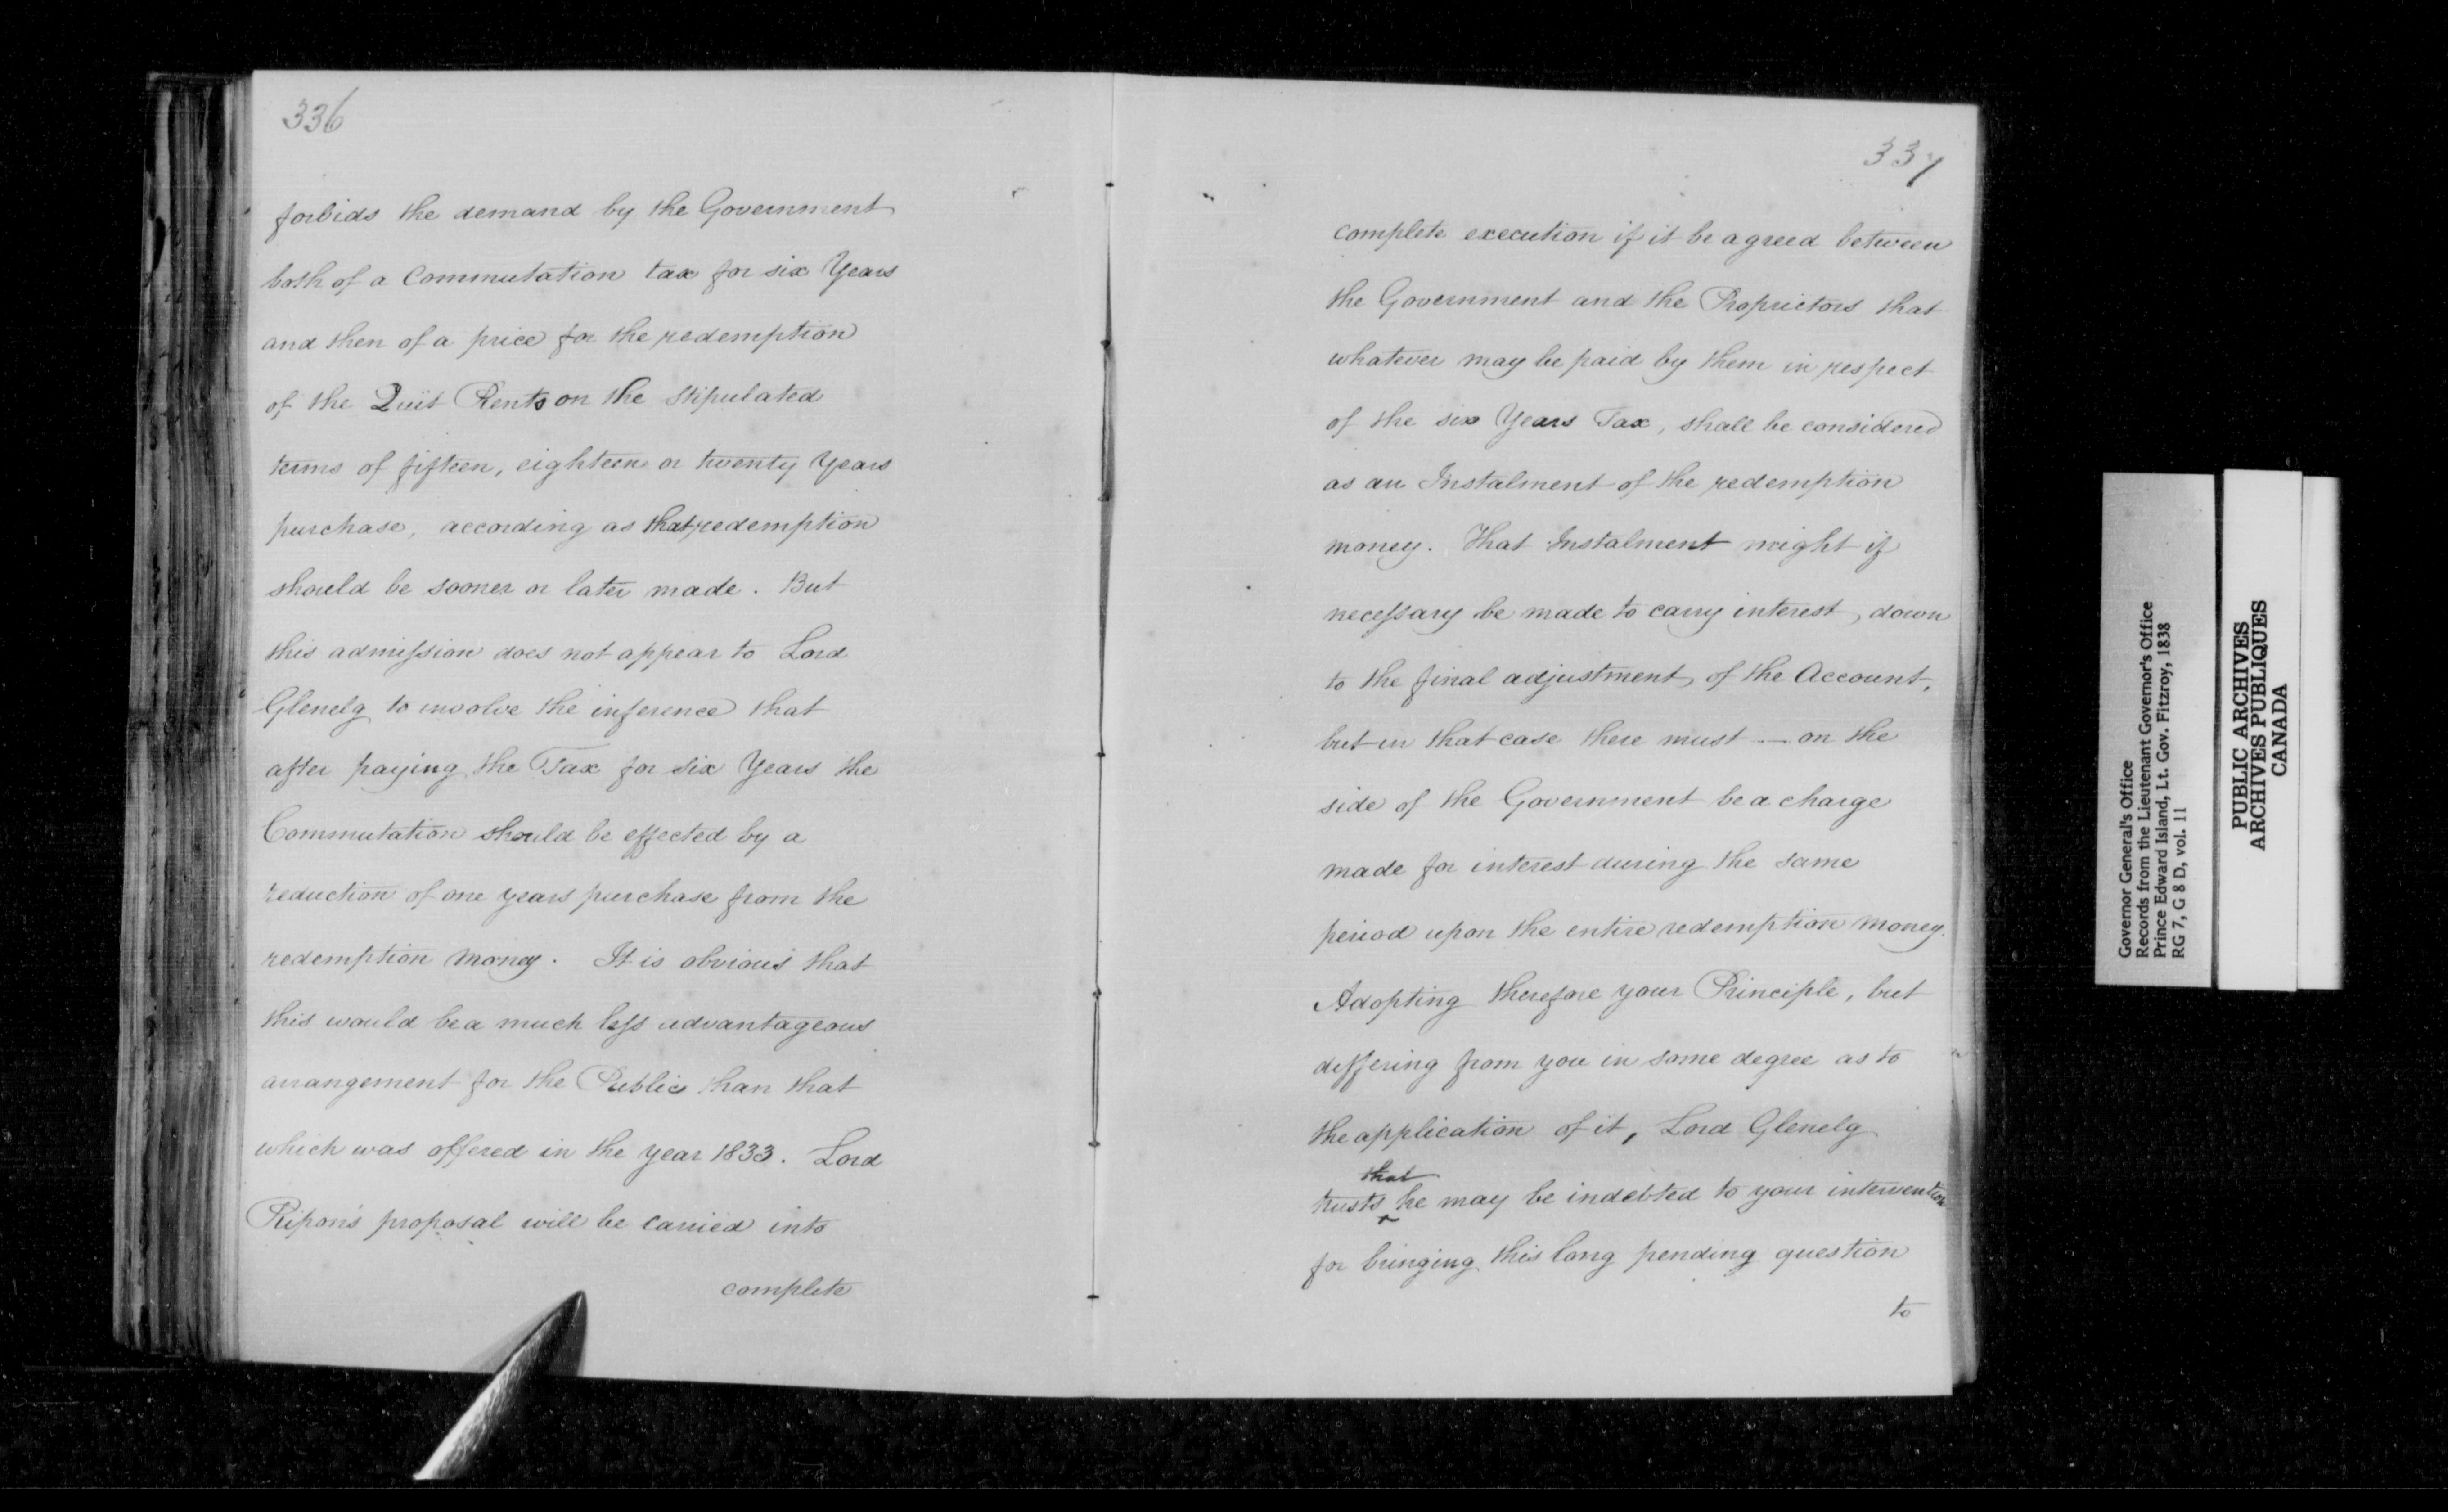 336
forbids the demand by the Government
both of a Commutation tax for six Years
and then of a price for the redemption
of the Quit Rents on the stipulated
terms of fifteen, eighteen or twenty Years
purchase, according as that redemption
should be sooner or later made. But
this admission does not appear to Lord
Glenelg to involve the inference that
after paying the Tax for six Years the
Commutation should be effected by a
reduction of one years purchase from the
redemption money. It is obvious that
this would be a much less advantageous
arrangement for the Public than that
which was offered in the year 1833. Lord
Ripon's proposal will be carried into
complete
337
complete execution if it be agreed between
the Government and the Proprietors that
whatever may be paid by them in respect
of the six Years Tax, shall be considered
as an Instalment of the redemption
money. That Instalment might if
necessary be made to carry interest, down
to the final adjustment, of the Account,
but in that case there must — on the
side of the Government be a charge
made for interest during the same
period upon the entire redemption money.
Adopting therefore your Principle, but
differing from you in some degree as to
the application of it, Lord Glenelg
that
trusts ^ he may be indebted to your intervention
for bringing this long pending question
to
Governor General's Office
Records from the Lieutenant Governor's Office
Prince Edward Island, Lt. Gov. Fitzroy, 1838
RG 7, G 8 D, vol. 11
PUBLIC ARCHIVES
ARCHIVES PUBLIQUES
CANADA